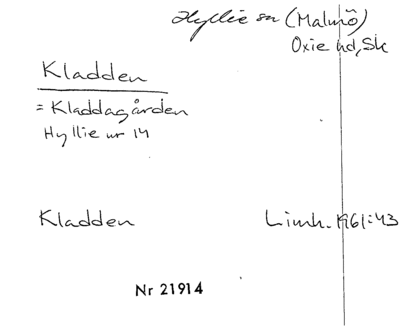 Hyllie sn (Malmö)
Oxie hd, Sk
Kladden
= Kladdagården
Hyllie nr 14
Kladden Limh. 1961:43
Nr 21914